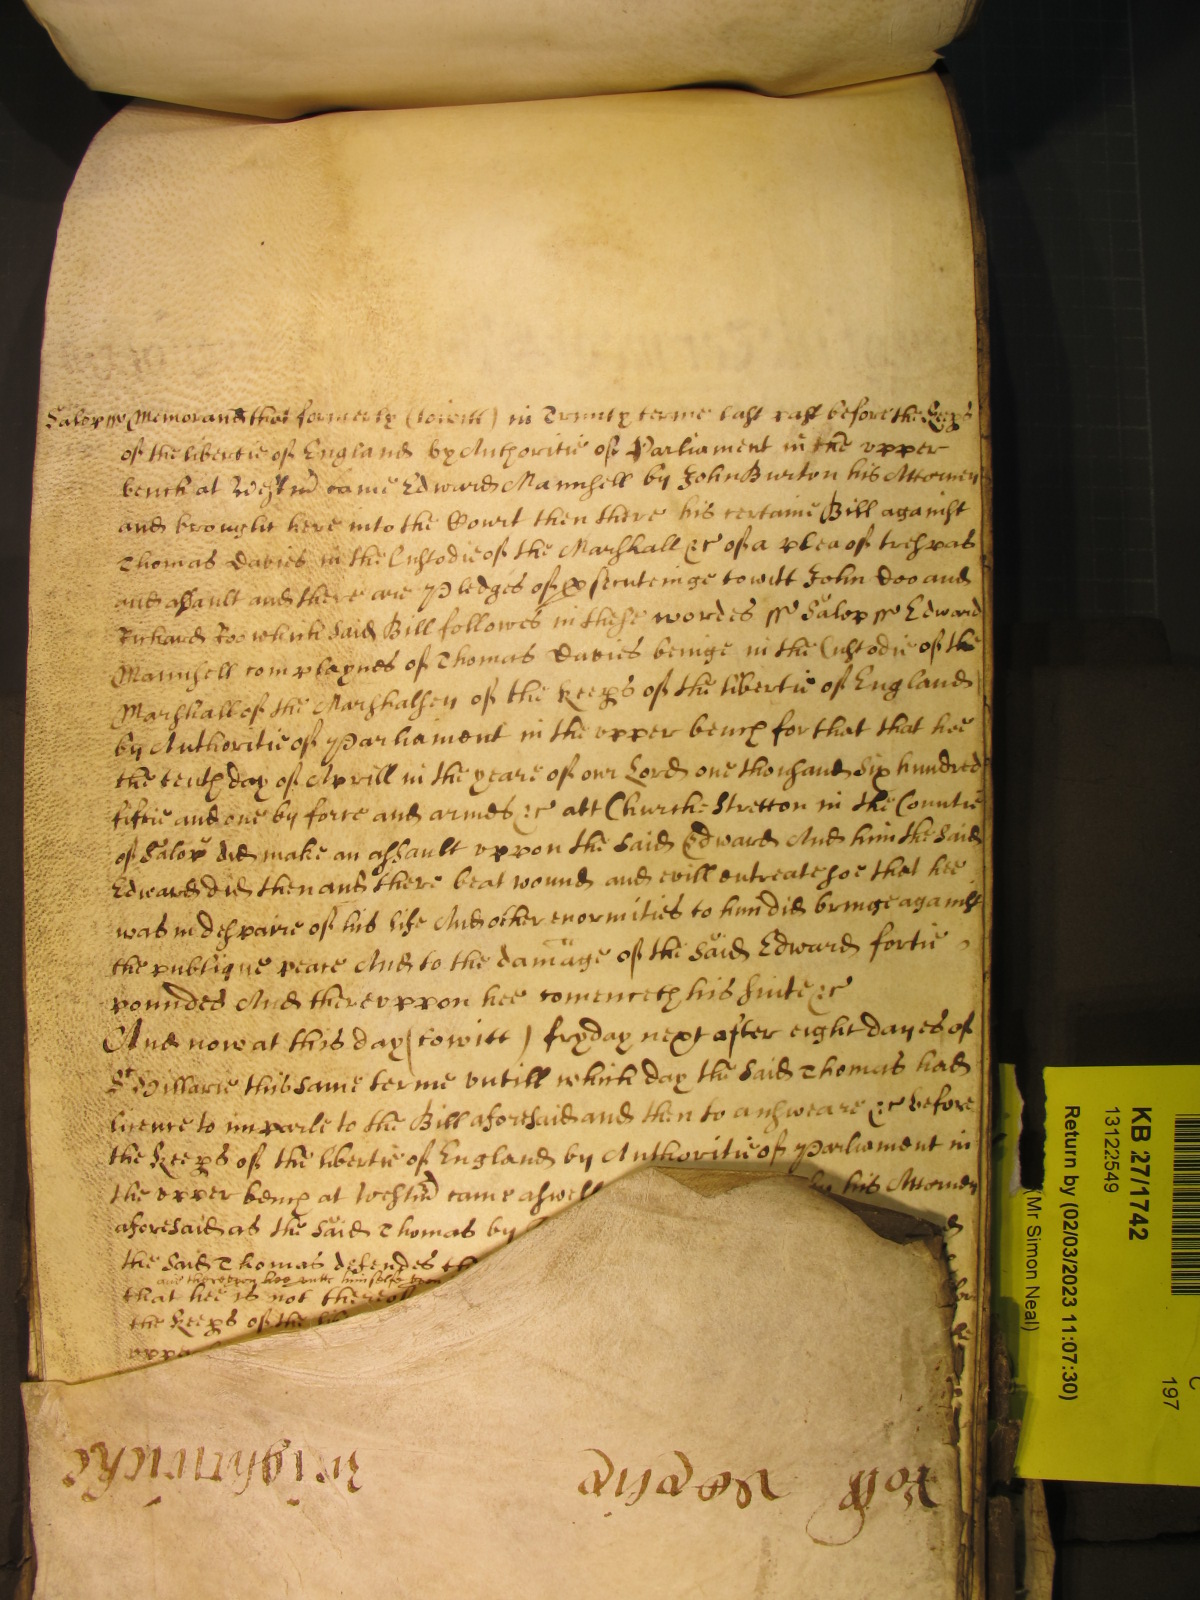 Salop ss Memorand that formerly (towitt) in Trinity terme last past before the Keeps
of the libertie of England by Authoritie of Parliament in the upper
bench at Westmr came Edward Mannsell by John Burton his Attorney
and brought here into the Court then there his certaine Bill against
Thomas Davies in the Custodie of the Marshall &c of a plea of trespas
and assault and there are Pledges of prsecuteinge towitt John Doo and
Richard Roo which said Bill followes in these wordes ss Salop ss Edward
Mannsell complaynes of Thomas Davies beinge in the Custodie of the
Marshall of the Marshalsey of the Keeps of the libertie of England
by Authoritie of Parliament in the upper bench for that that hee
the tenth day of Aprill in the yeare of our Lord one thousand six hundred
fiftie and one by force and armes &c att Churche Stretton in the Countie
of Salop did make an assault uppon the said Edward And him the said
Edward did then and there beat wound and evill entreate soe that hee
was in despaire of his life And other enormities to him did bringe against
the publique peace And to the damage of the said Edward fortie
poundes And thereuppon hee comenceth his suite &c
And now at this day (towitt) fryday next after eight dayes of
St Hillarie this same terme untill which day the said Thomas had
licence to imparle to the Bill aforesaid and then to answeare &c before
the Keeps of the libertie of England by Authoritie of Parliament in
the upper bench at Westmr came aswell by his Attorney
aforesaid as the said Thomas by
the said Thomas defendes
and thereupon hee putts himselfe upon
that hee is not thereof
the Keeps of the
uppe
KB 27/1742
13122549
Return by (02/03/2023 11:07:30)
(Mr Simon Neal)
C
197